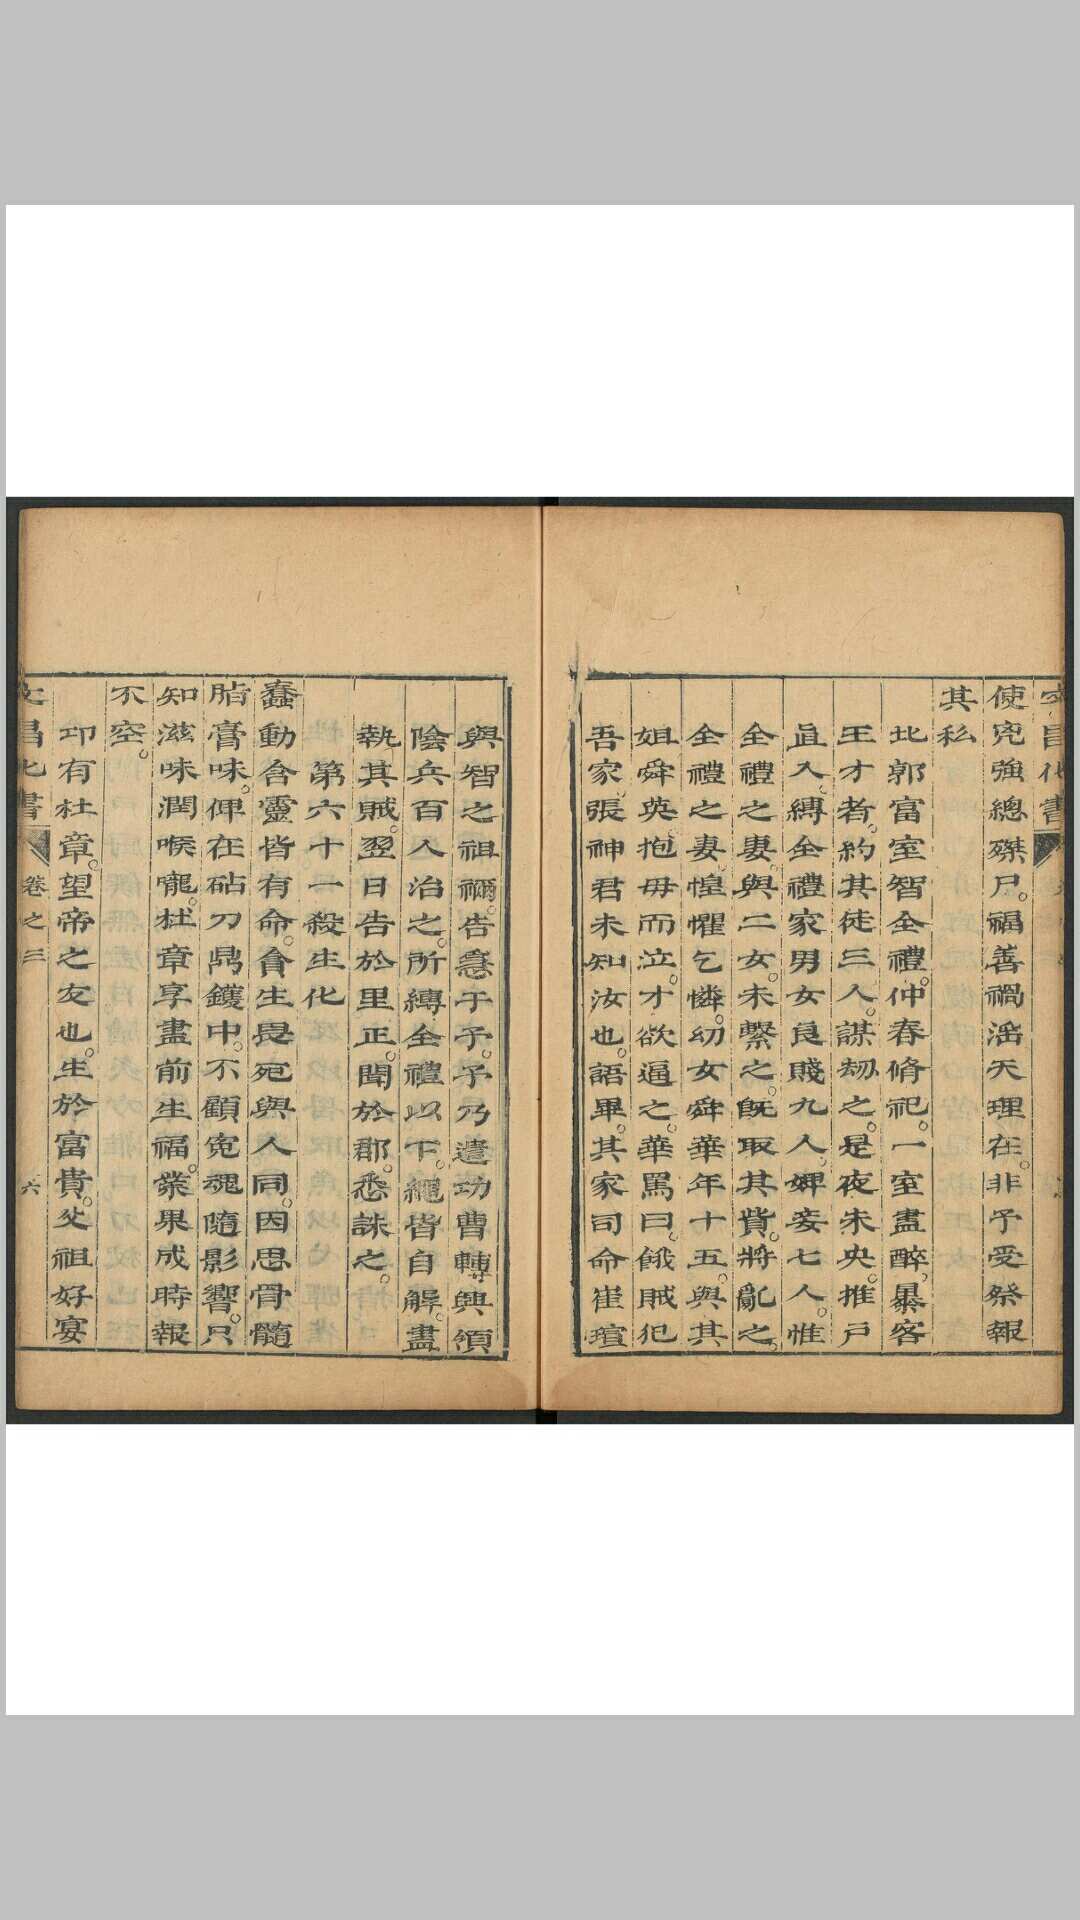 文昌化書
使兇強總磔尸。福善禍淫天理在。非予受祭報
其私
北郭富室智全禮。仲春脩祀。一室盡醉。暴客
王才者。約其徒三人。謀劫之。是夜未央。推戶
直入。縛全禮家男女良賤九人。婢妾七人。惟
全禮之妻。與二女。未繫之。既取其貲。將亂之。
全禮之妻。惶懼乞憐。幼女舜華年十五。與其
姐舜英抱毋而泣。才欲逼之。華罵曰。餓賊犯
吾家。張神君未知汝也。語畢。其家司命崔瑄
與智之祖禰。告急于予。予乃遣功曹轉興領
陰兵百人治之。所縛全禮以下。繩皆自解。盡
執其賊。翌日告於里正。聞於郡。悉誅之。
第六十一殺生化
蠢動含靈皆有命。貪生畏死與人同。因思骨髓
脂膏味。俾在砧刀鼎鑊中。不顧寃魂隨影響。只
知滋味潤喉嚨。杜章享盡前生福。業果成時報
不空。
邛有杜章。望帝之友也。生於富貴。父祖好宴
文昌化書 卷之三 六